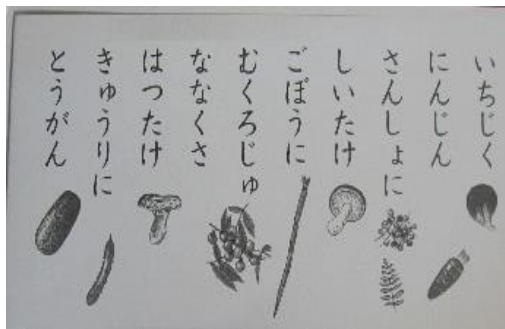 いちじく
にんじん
さんしょに
しいたけ
ごぼうに
むくろじゅ
ななくさ
はつたけ
きゅうりに
とうがん